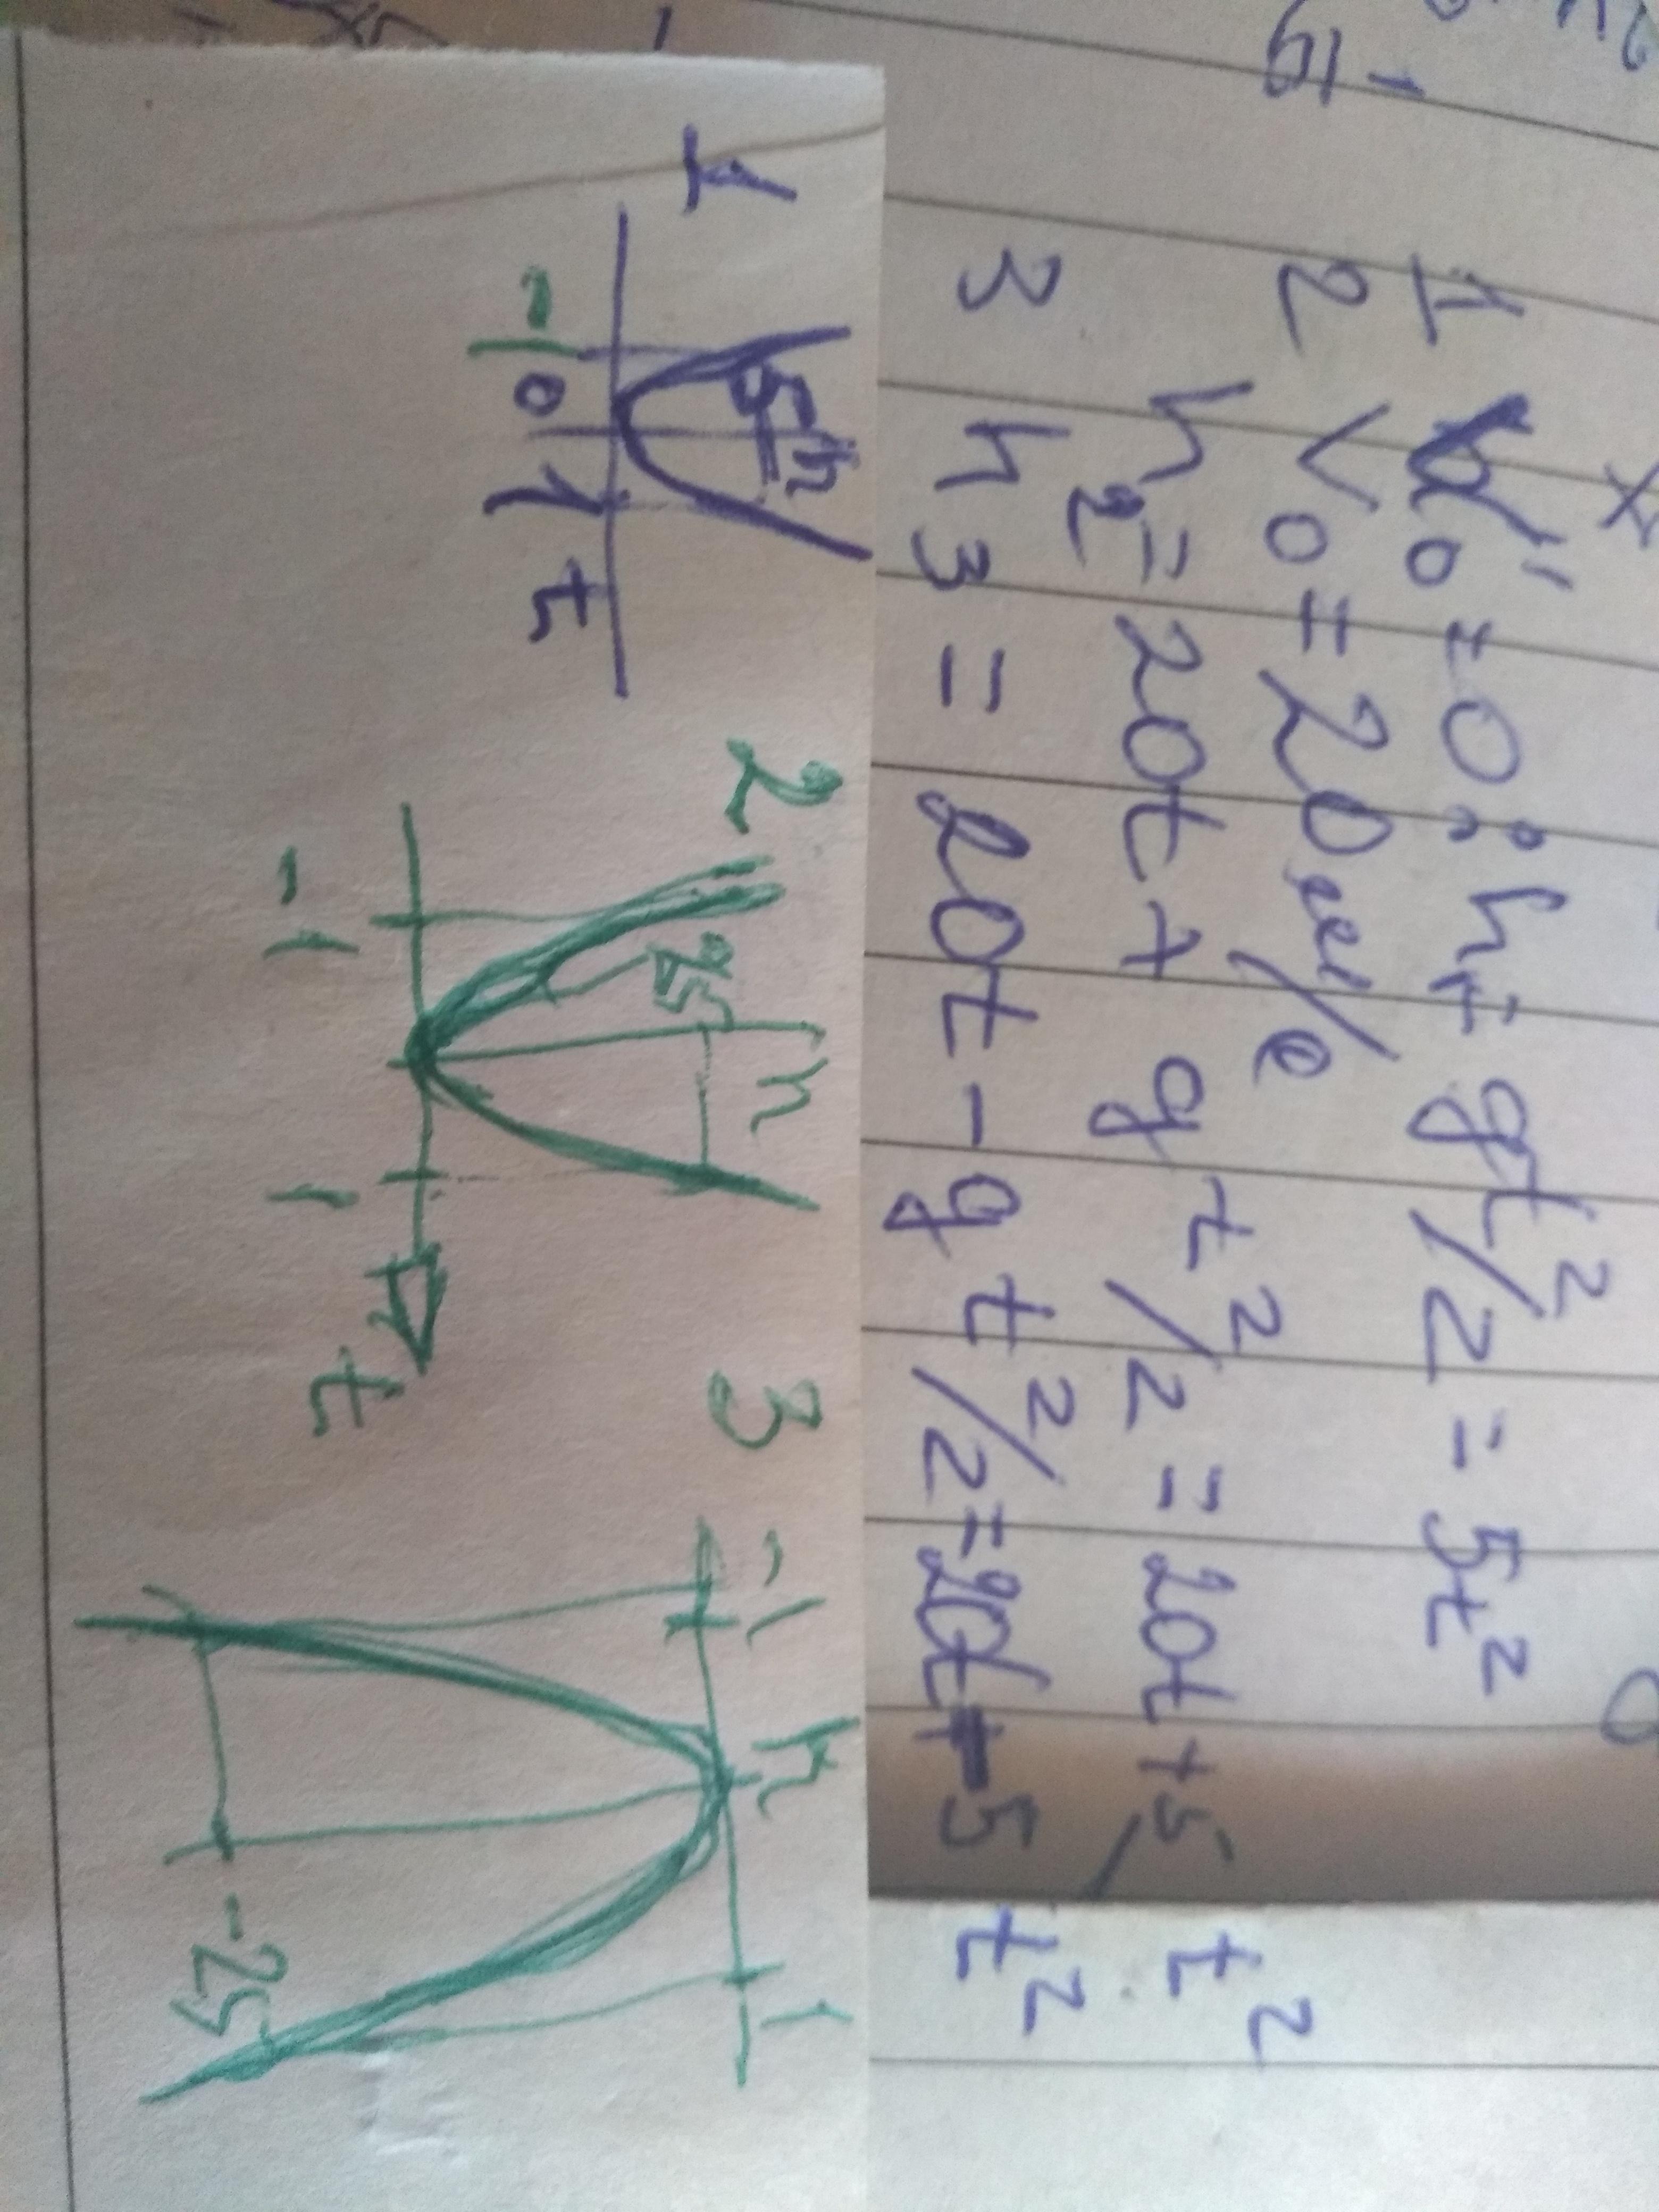 1 V₀ = 0: h₁ = gt²/2 = 5t²
2 V₀ = 20 м/с
h₂ = 20t + gt²/2 = 20t + 5t²
3 h3 = 20t - gt²/2 = 20t - 5t²
1
5 h
-1 0 1 t
2
h
25
-1 1 t
3
-1 h 1
-25